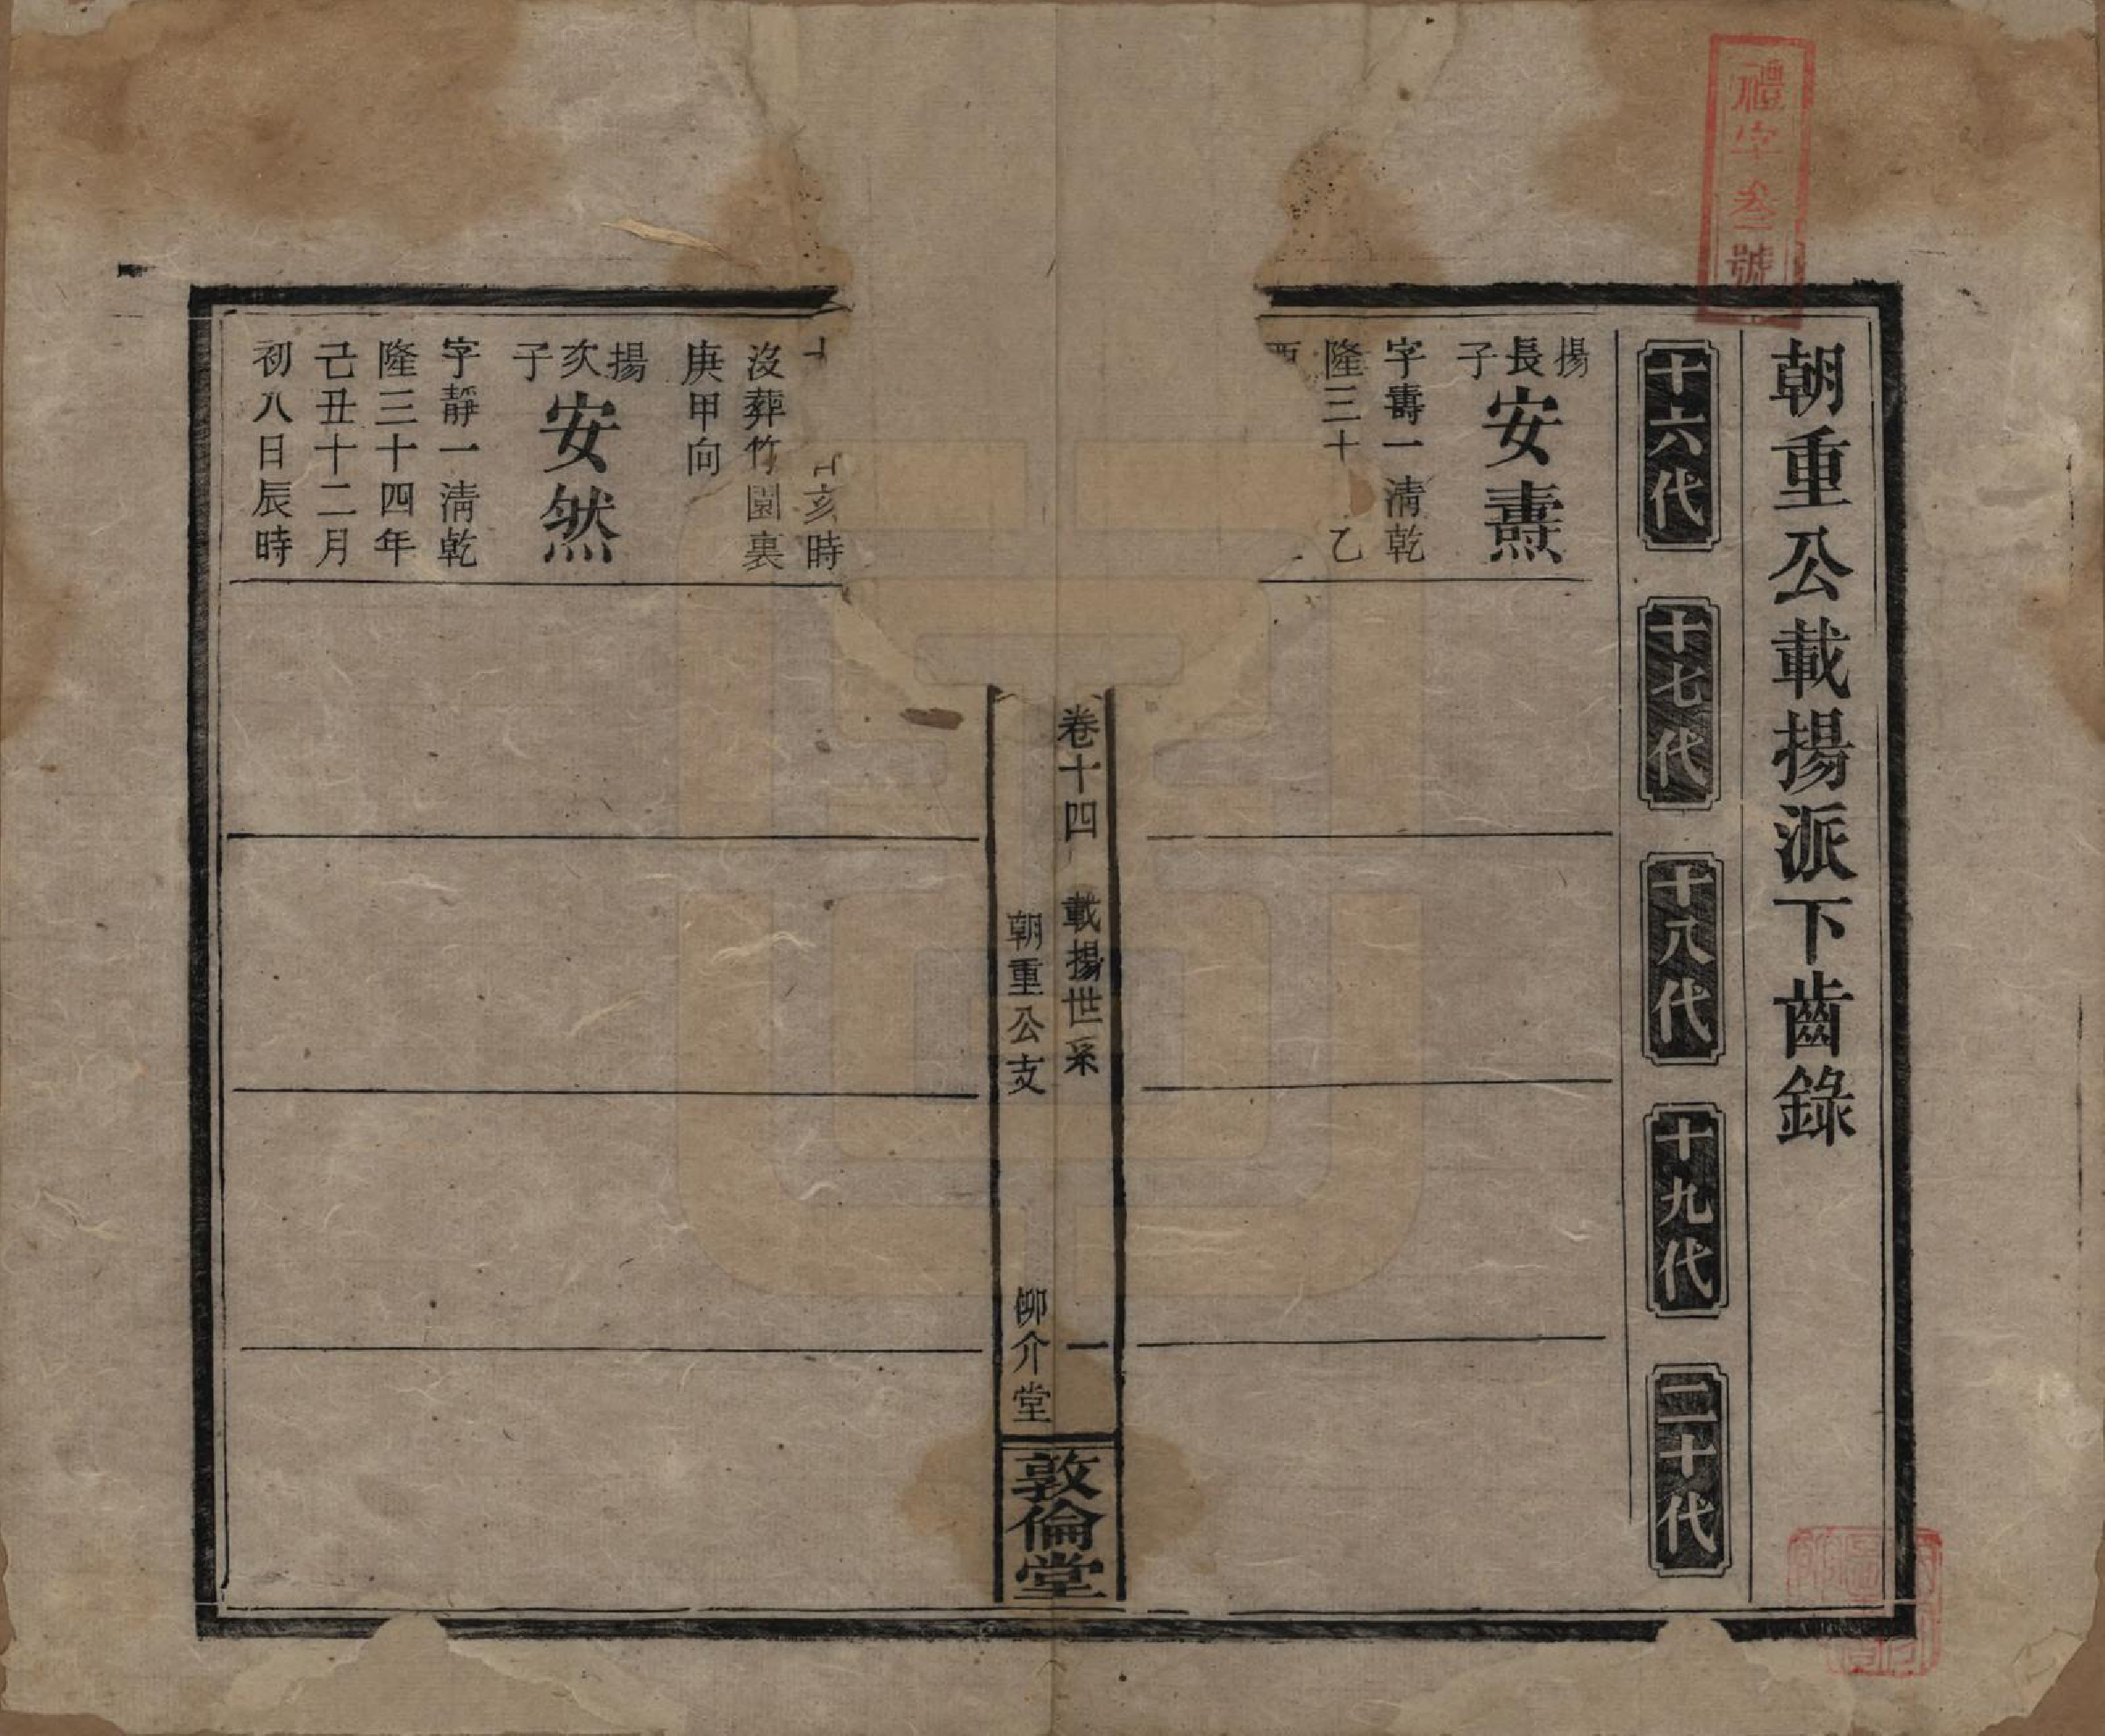 禮字叁號
朝重公載揚派下齒錄
十六代
十七代
十八代
十九代
二十代
揚長子安燾
字壽一清乾
隆三十 乙
卷十四 載揚世系 一
朝重公支 柳介堂
敦倫堂
亥時
没葬竹園裏
庚甲向
揚次子安然
字靜一清乾
隆三十四年
己丑十二月
初八日辰時